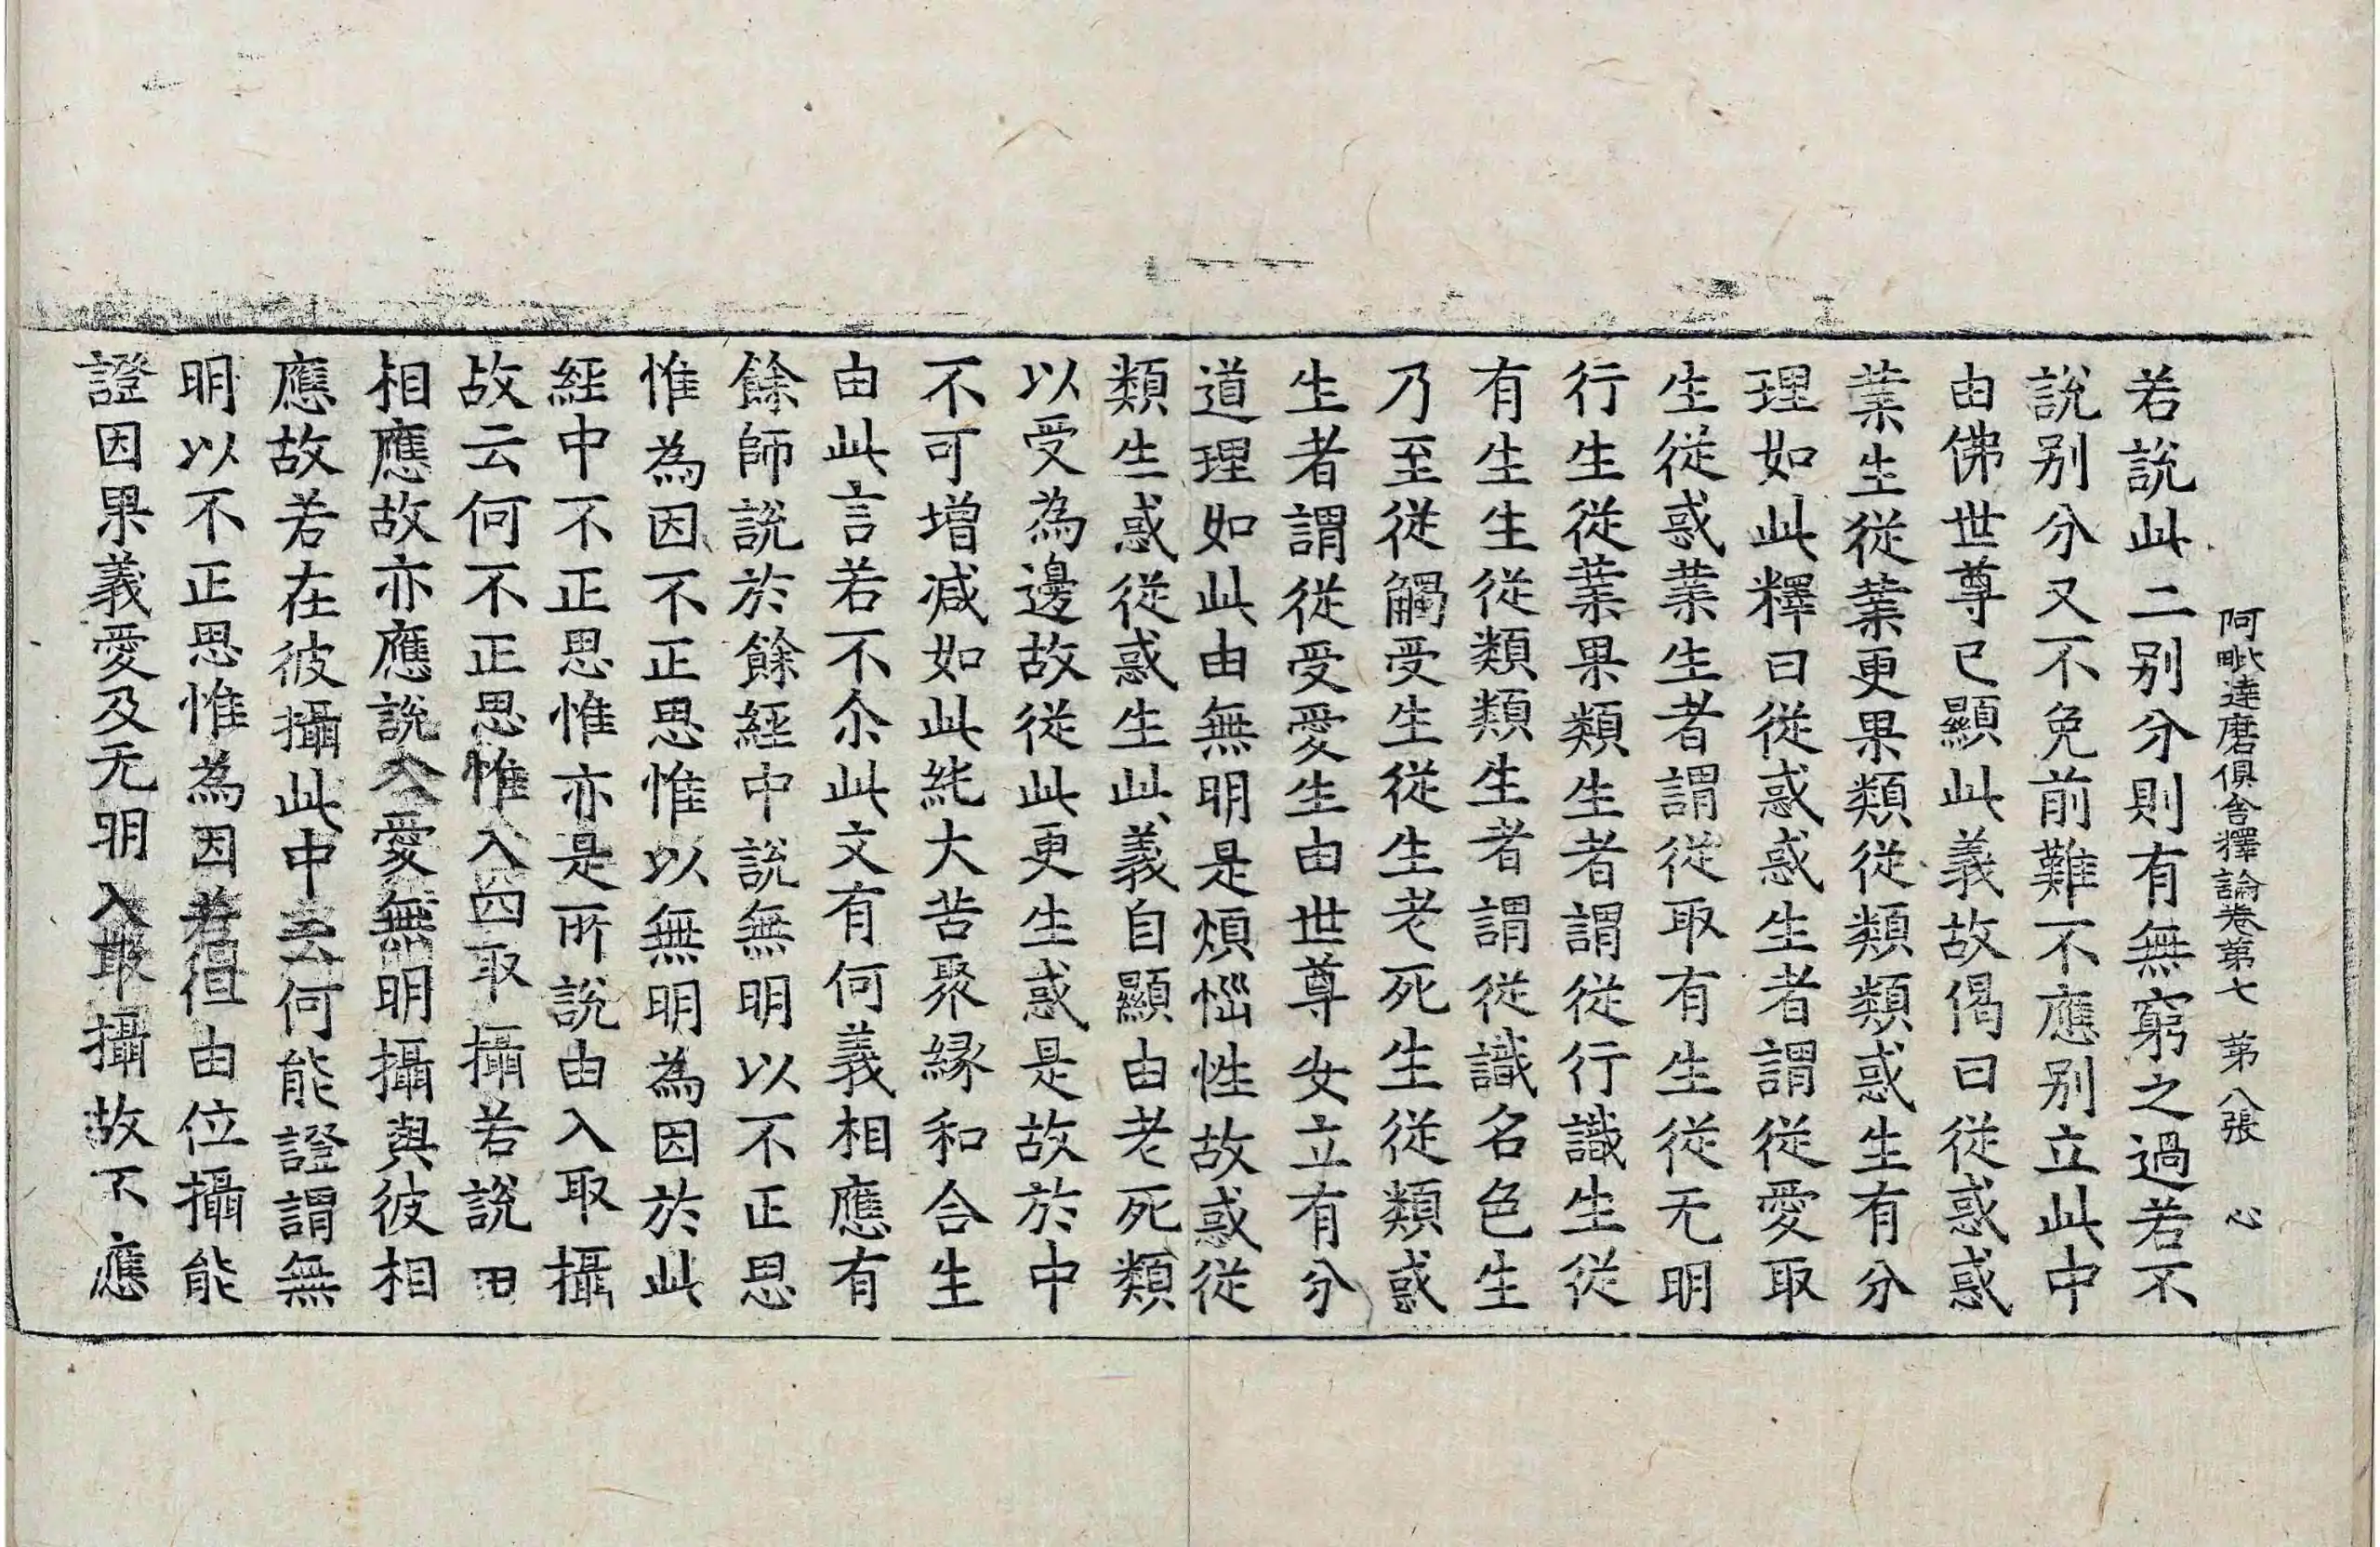 阿毗達磨俱舍釋論卷第七 第八張 心
若說此二别分則有無窮之過若不
說别分又不免前難不應别立此中
由佛世尊已顯此義故偈曰從惑惑
業生從業更果類從類類惑生有分
理如此釋曰從惑惑生者謂從愛取
生從惑業生者謂從取有生從无明
行生從業果類生者謂從行識生從
有生生從類類生者謂從識名色生
乃至從觸受生從生老死生從類惑
生者謂從受愛生由世尊安立有分
道理如此由無明是煩惱性故惑從
類生惑從惑生此義自顯由老死類
以受為邊故從此更生惑是故於中
不可增减如此純大苦聚緣和合生
由此言若不尒此文有何義相應有
餘師說於餘經中說無明以不正思
惟為因不正思惟以無明為因於此
經中不正思惟亦是所說由入取攝
故云何不正思惟入四取攝若說由
相應故亦應說入愛無明攝與彼相
應故若在彼攝此中云何能證謂無
明以不正思惟為因若但由位攝能
證因果義愛及无明入取攝故不應